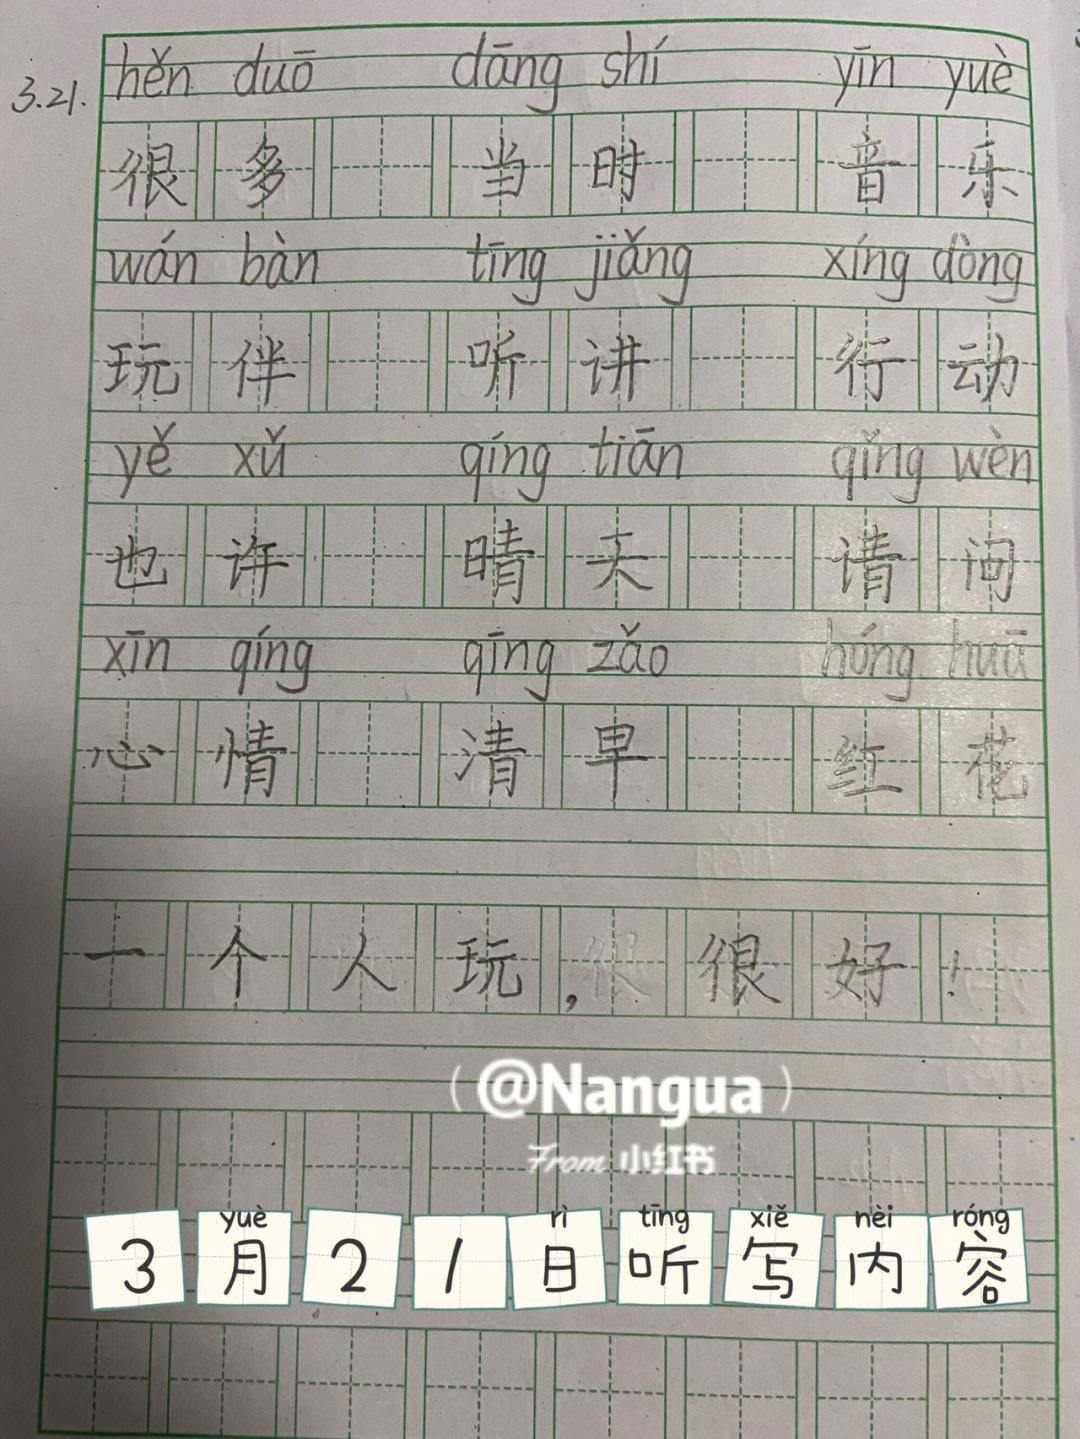 3.21.
hěn duō dāng shí yīn yuè
很多 当时 音乐
wán bàn tīng jiǎng xíng dòng
玩伴 听讲 行动
yě xǔ qíng tiān qǐng wèn
也许 晴天 请问
xīn qíng qīng zǎo hóng huā
心情 清早 红花
一个人玩，很好！
(@Nangua)
From 小红书
yuè rì tīng xiě nèi róng
3月21日听写内容